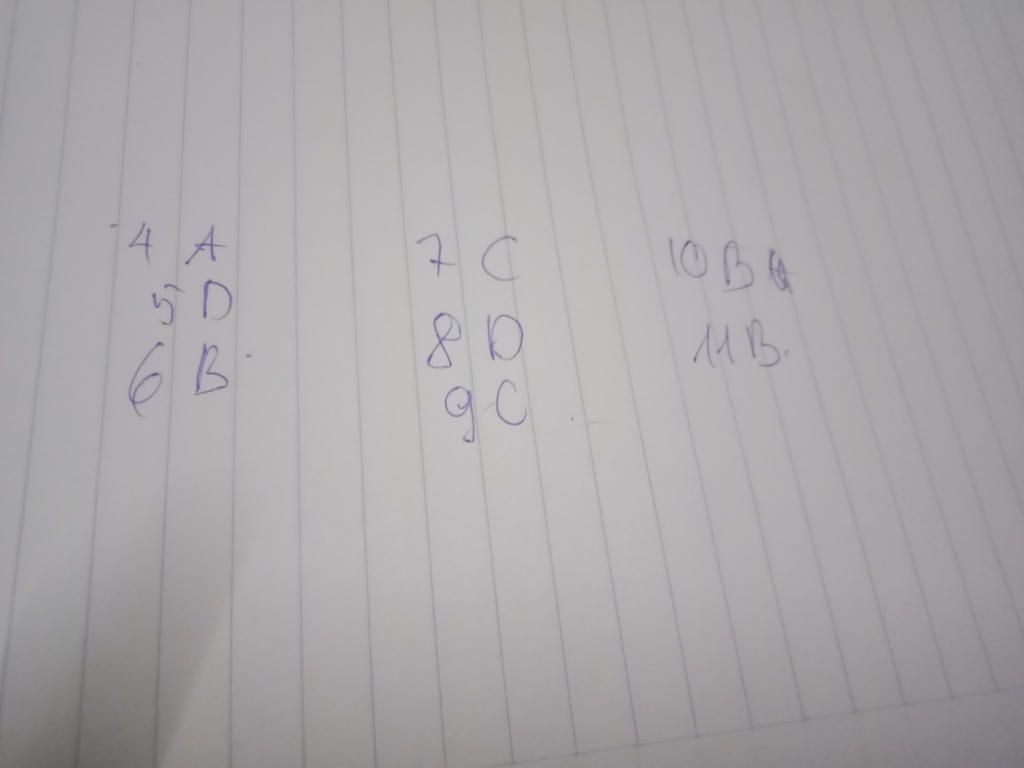 4 A
5 D
6 B
7 C
8 D
9 C
10 B
11 B.